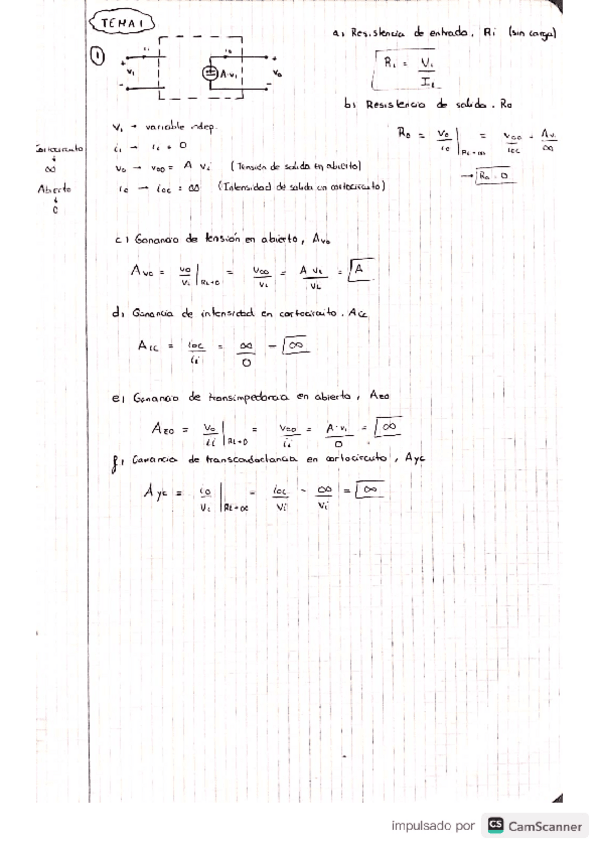 TEMA 1
1
a) Resistencia de entrada, Ri (sin carga)
Ri = Vi / Ii
b) Resistencia de salida. Ro
Ro = vo / io | RL=∞ = voo / ioc = Av. / ∞
→ Ro = 0
+ ii io +
v1 A·v1 vo
- -
Vi → variable indep.
ii → ii = 0
vo → voo = A vi (Tensión de salida en abierto)
io → ioc = ∞ (Intensidad de salida en cortocircuito)
↓
∞
Abierto
↓
0
c) Ganancia de tensión en abierto, Avo
Avo = vo / vi | RL=0 = voo / vi = A vi / vi = A
d) Ganancia de intensidad en cortocircuito. Aic
Aic = ioc / ii = ∞ / 0 = ∞
e) Ganancia de transimpedancia en abierto, Azo
Azo = vo / ii | RL=0 = voo / ii = A·vi / 0 = ∞
f) Ganancia de transconductancia en cortocircuito, Ayc
Ayc = io / vi | RL=∞ = ioc / vi = ∞ / vi = ∞
impulsado por CS CamScanner